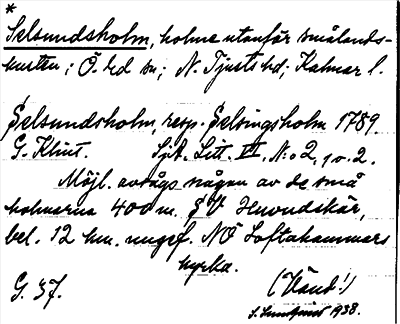 *
Selsundsholm, holme utanför smålands-
kusten; Ö. Ed sn; N. Tjusts hd; Kalmar l.
Selsundsholm, resp. Selsingsholm 1789
G. Klint. Sjöt. Litt. VI, N:o 2, 1 o. 2.
Möjl. avsågs någon av de små
holmarna 400 m. SV Huvudskär,
bel. 12 km. ungef. NÖ Loftahammars
kyrka.
G. 37. (Vänd!)
S. Lundquist 1938.